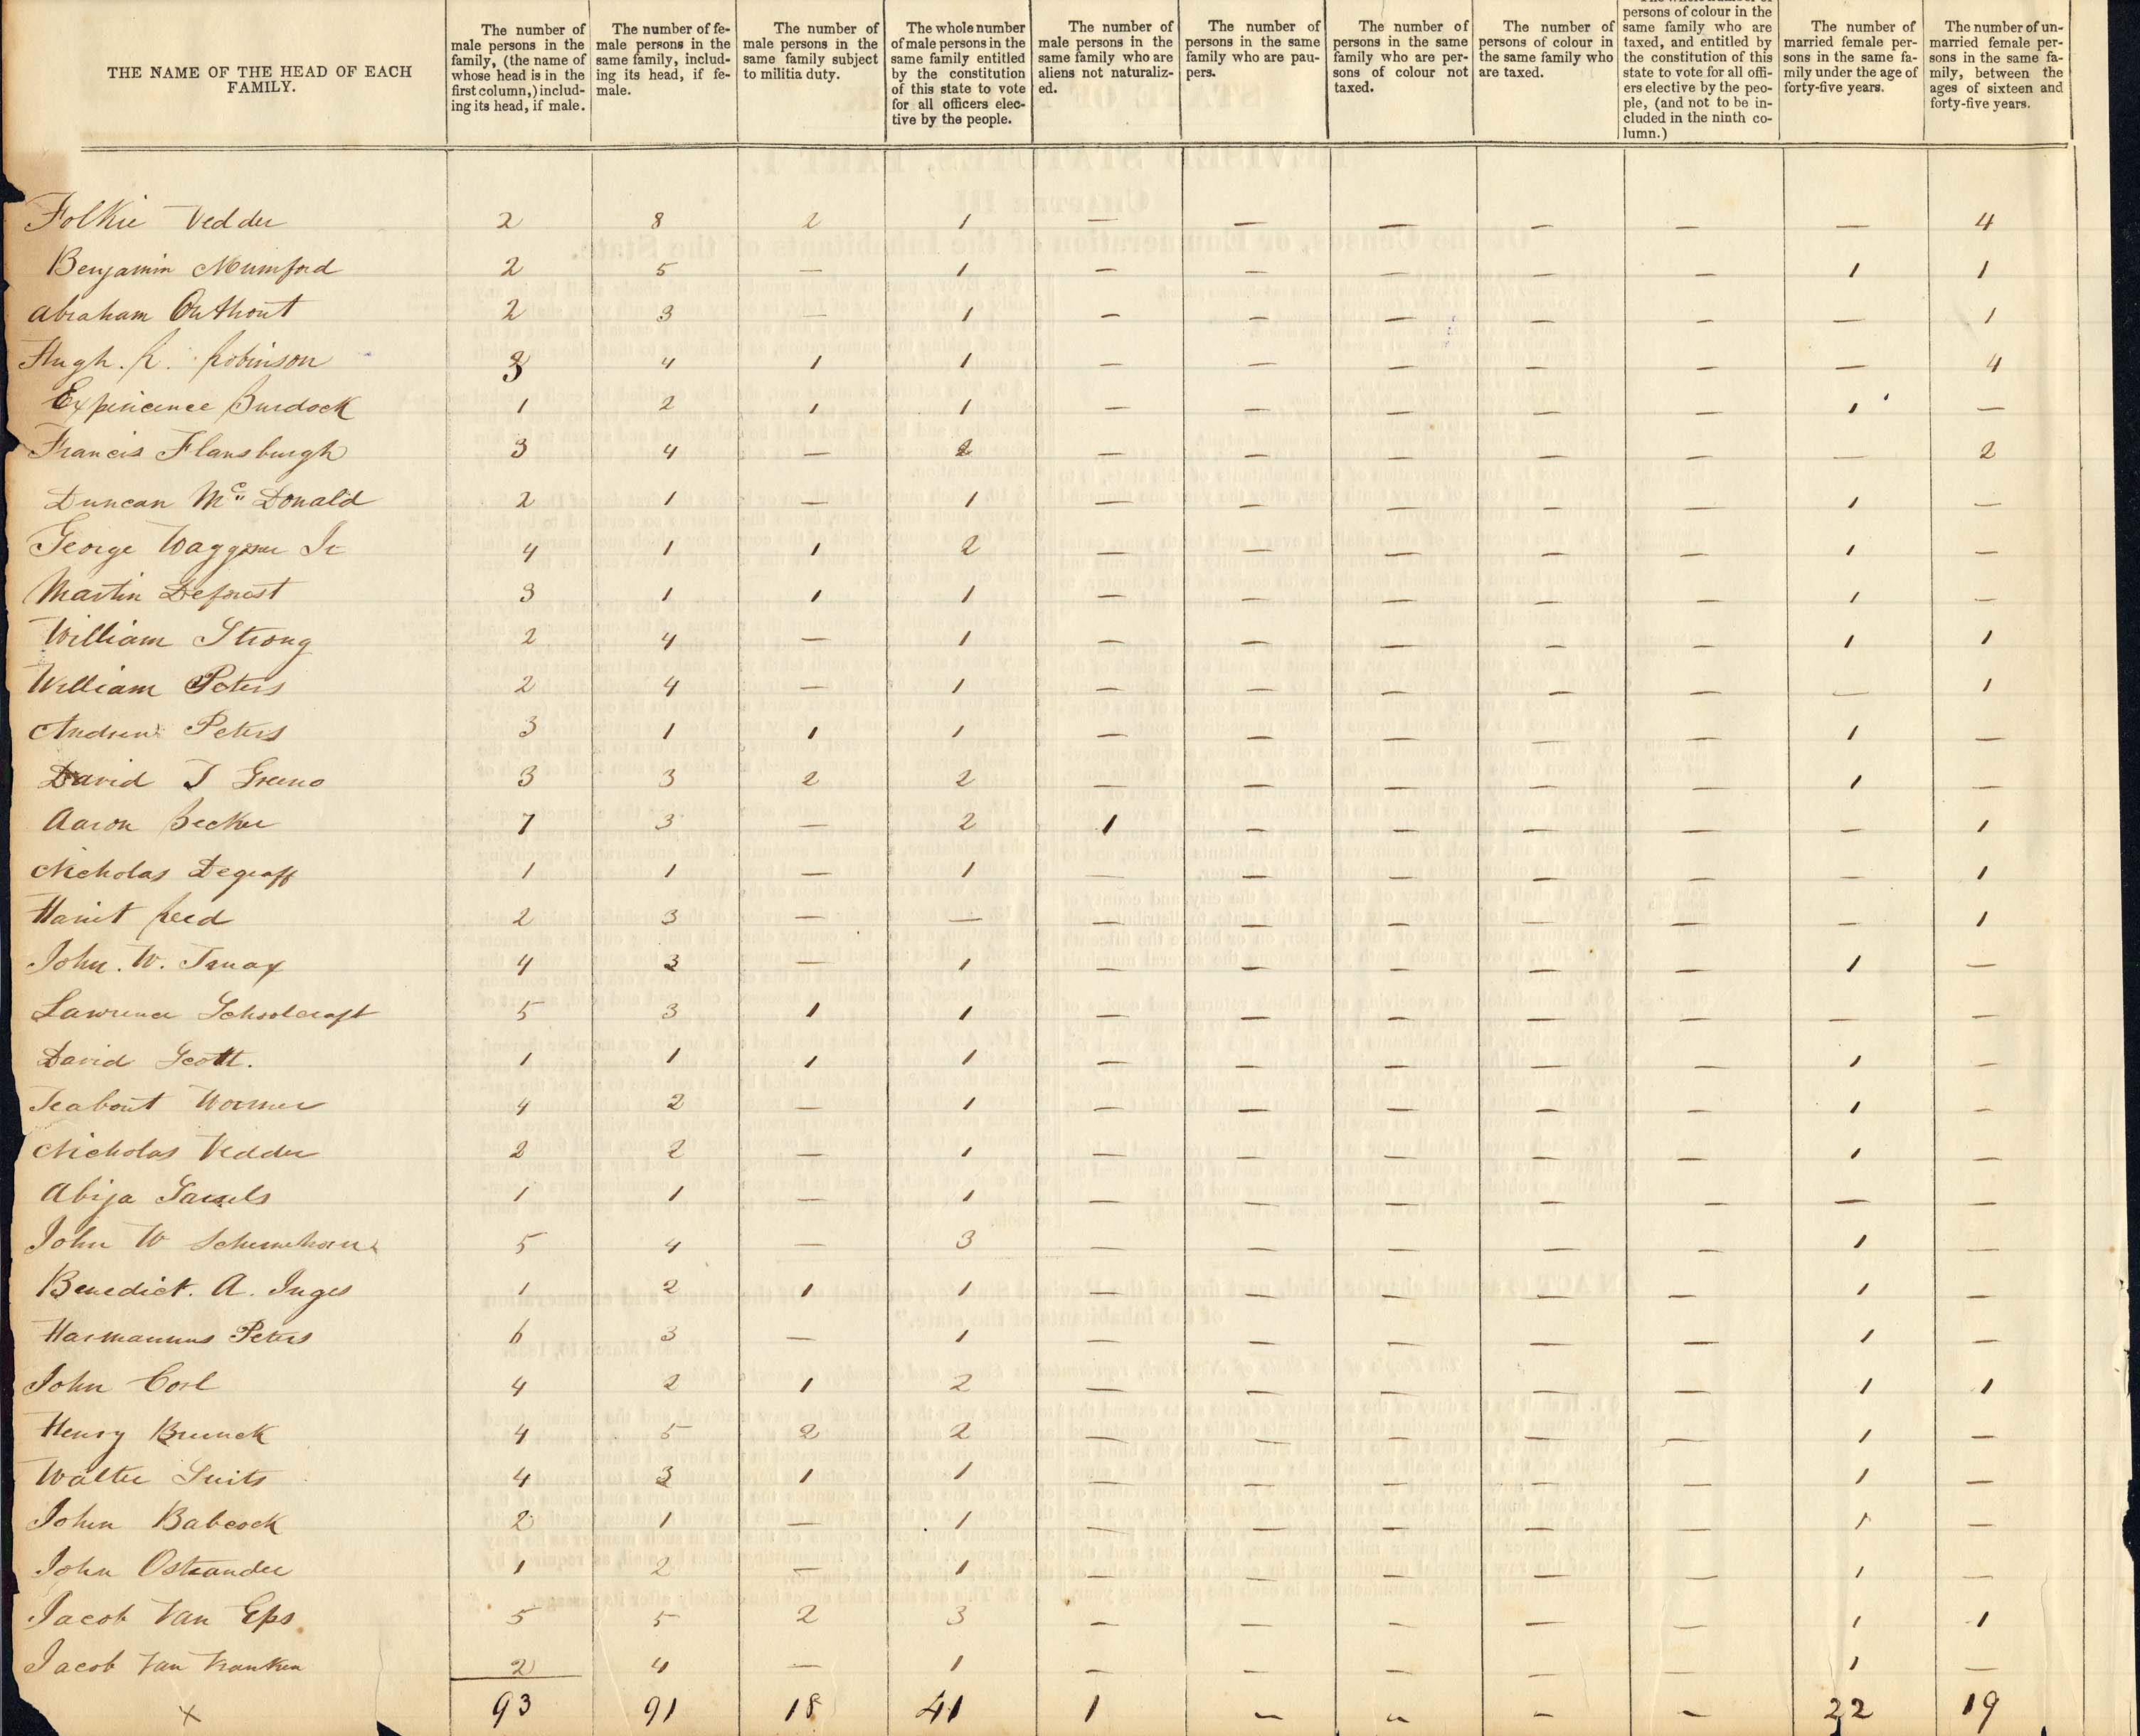 THE NAME OF THE HEAD OF EACH FAMILY.
The number of male persons in the family, (the name of whose head is in the first column,) including its head, if male.
The number of female persons in the same family, including its head, if female.
The number of male persons in the same family subject to militia duty.
The whole number of male persons in the same family entitled by the constitution of this state to vote for all officers elective by the people.
The number of male persons in the same family who are aliens not naturalized.
The number of persons in the same family who are paupers.
The number of persons in the same family who are persons of colour not taxed.
The number of persons of colour in the same family who are taxed.
persons of colour in the same family who are taxed, and entitled by the constitution of this state to vote for all officers elective by the people, (and not to be included in the ninth column.)
The number of married female persons in the same family under the age of forty-five years.
The number of unmarried female persons in the same family, between the ages of sixteen and forty-five years.
Folkie Vedder 2 8 2 1 — — — — — — 4
Benjamin Mumford 2 5 — 1 — — — — — 1 1
Abraham Outhout 2 3 — 1 — — — — — — 1
Hugh. R. Robinson 3 4 1 1 — — — — — — 4
Experience Burdock 1 2 1 1 — — — — — 1 —
Francis Flansburgh 3 4 — 2 — — — — — — 2
Duncan Mc Donald 2 1 — 1 — — — — — 1 —
George Waggoner Jr 4 1 1 2 — — — — — 1 —
Martin Deforest 3 1 1 1 — — — — — 1 —
William Strong 2 4 — 1 — — — — — 1 1
William Peters 2 4 — 1 — — — — — — 1
Andrew Peters 3 1 1 1 — — — — — 1 —
David T Greeno 3 3 2 2 — — — — — 1 —
Aaron Becker 7 3 — 2 1 — — — — — 1
Nicholas Degraff 1 1 — 1 — — — — — — 1
Hariet Reed 2 3 — — — — — — — — 1
John. W. Truax 4 3 — 1 — — — — — 1 —
Lawrence Schoolcraft 5 3 1 1 — — — — — — —
David Scott. 1 1 1 1 — — — — — 1 —
Teabout Wormer 4 2 — 1 — — — — — 1 —
Nicholas Vedder 2 2 — 1 — — — — — 1 —
Abija 1 1 — 1 — — — — — — —
John W Schermehorn 5 4 — 3 — — — — — 1 —
Benedict. A. Inges 1 2 1 1 — — — — — 1 —
Harmannus Peters 6 3 — 1 — — — — — 1 —
John Corl 4 2 1 2 — — — — — 1 1
Henry Brunck 4 5 2 2 — — — — — 1 —
Walter Suits 4 3 1 1 — — — — — 1 —
John Babcock 2 1 — 1 — — — — — 1 —
John Ostrander 1 2 — 1 — — — — — 1 —
Jacob Van Eps 5 5 2 3 — — — — — 1 1
Jacob Van Vranken 2 4 — 1 — — — — — 1 —
x 93 91 18 41 1 — — — — 22 19